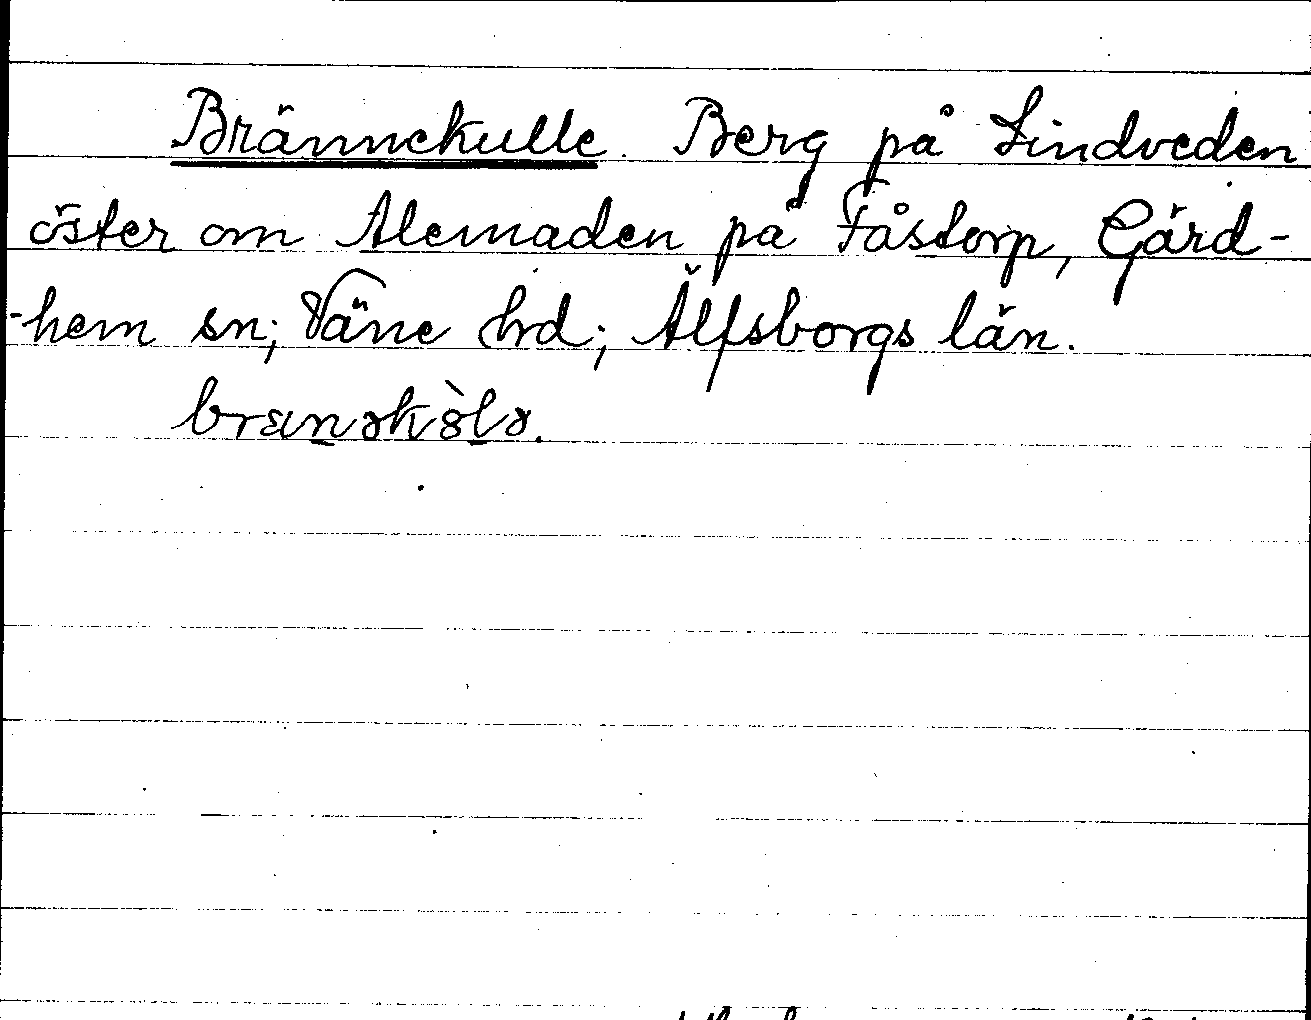 Brännekulle. Berg på Lindveden
öster om Alemaden på Fåstorp, Gärd-
-hem sn; Väne hd; Älfsborgs län.